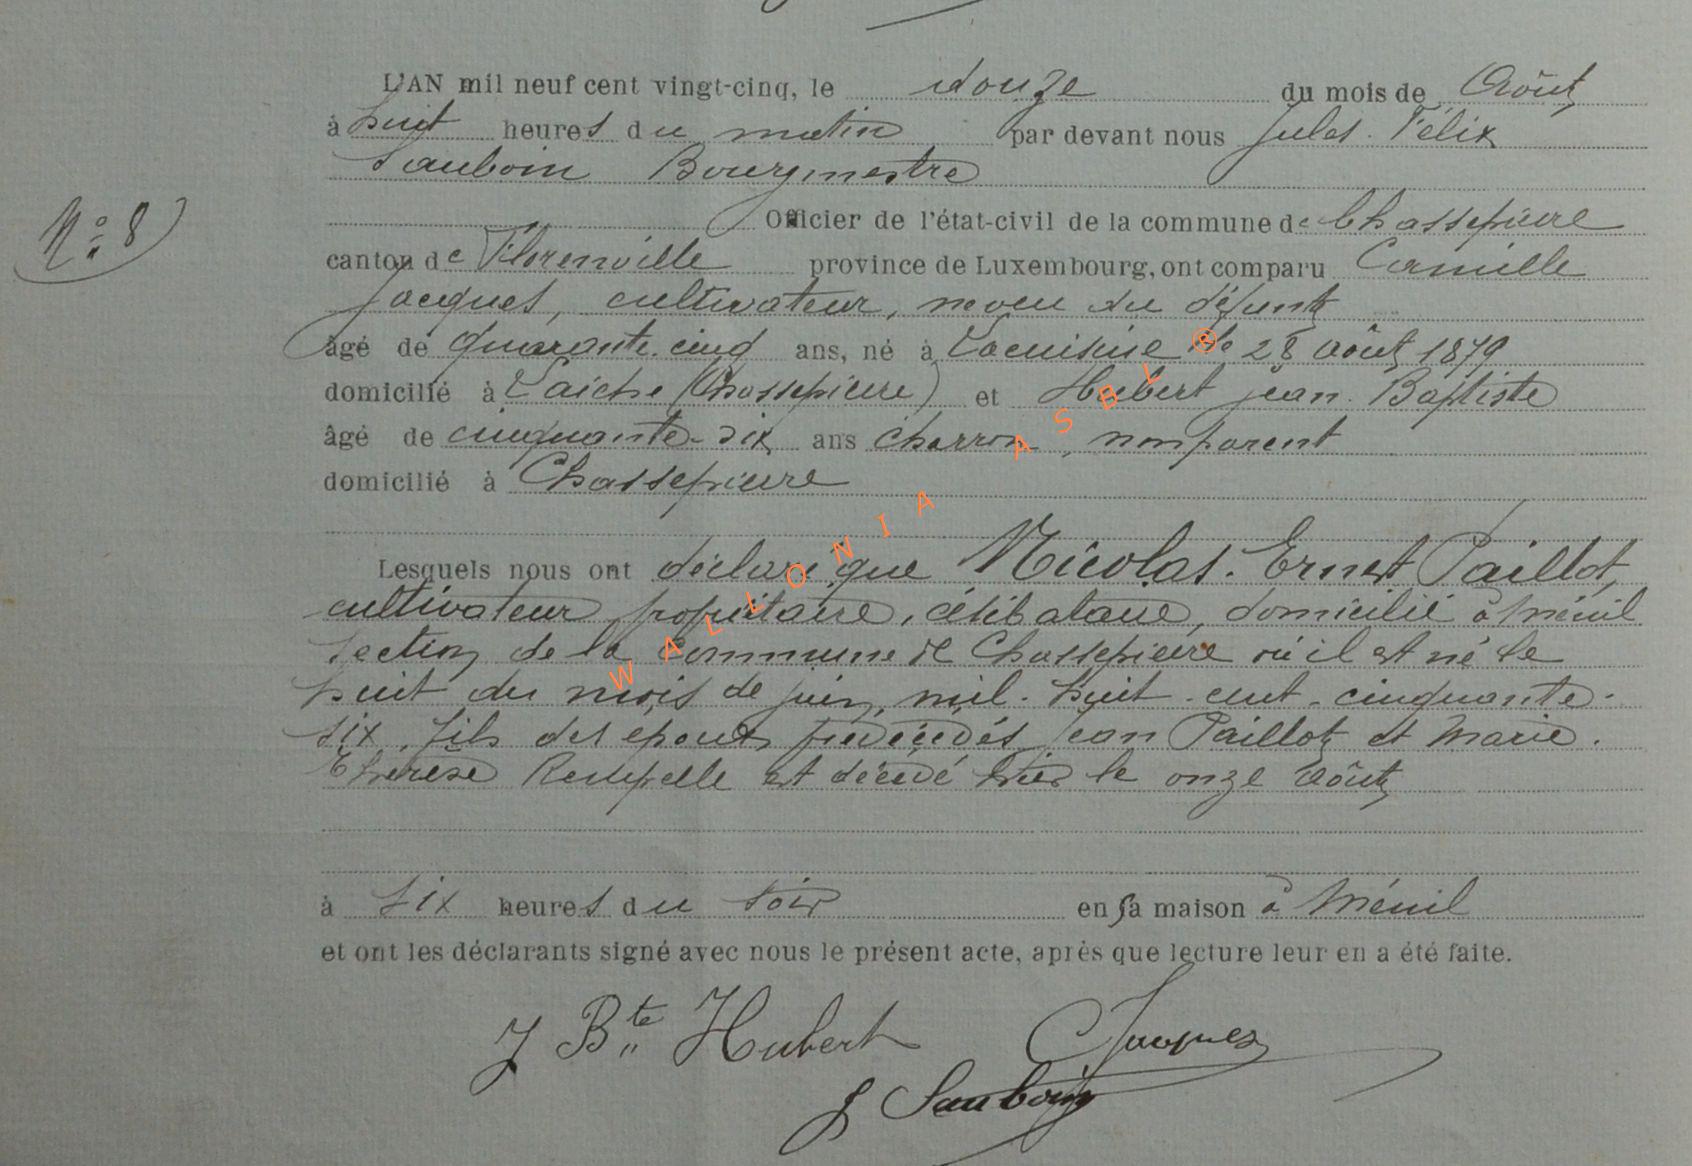 L'AN mil neuf cent vingt-cinq, le douze du mois de Août
à huit heures du matin par devant nous Jules Félix
Sauboin Bourgmestre
N° 8
Officier de l'état-civil de la commune de Chassepierre
canton de Florenville province de Luxembourg, ont comparu Camille
Jacques, cultivateur, neveu du défunt
âgé de quarante-cinq ans, né à Lacuisine le 28 Août 1879
domicilié à Laiche (Chassepierre) et Hubert Jean-Baptiste
âgé de cinquante-six ans charron, non parent
domicilié à Chassepierre
Lesquels nous ont déclaré que Nicolas-Ernest Paillot,
cultivateur propriétaire, célibataire, domicilié à Ménil
section de la commune de Chassepierre où il est né le
huit du mois de juin, mil-huit-cent-cinquante-
six, fils des epoux prédécédés Jean Paillot et Marie-
Therese est décédé hier le onze Août
à six heures du soir en sa maison à Ménil
et ont les déclarants signé avec nous le présent acte, après que lecture leur en a été faite.
J Bte Hubert C Jacques
J Sauboin
WALLONIA ASBL ®